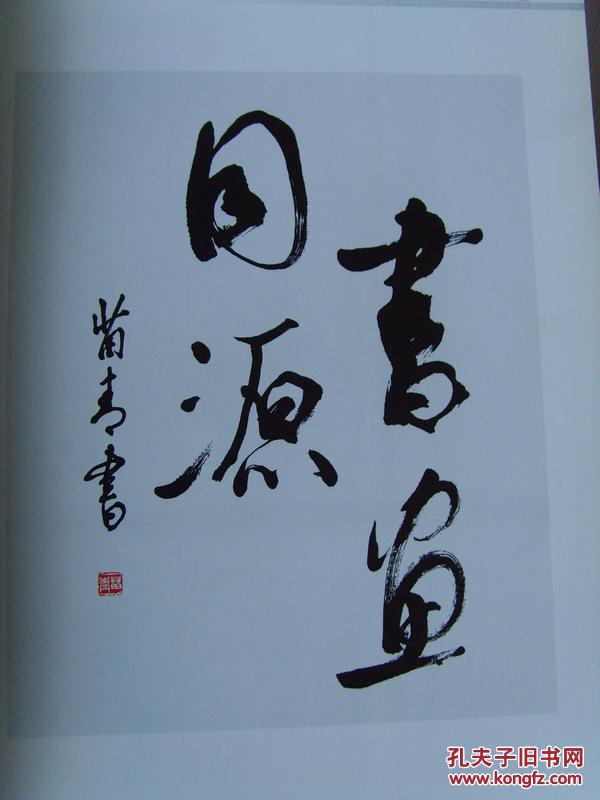 書畫
同源
苗青書
孔夫子旧书网
www.kongfz.com